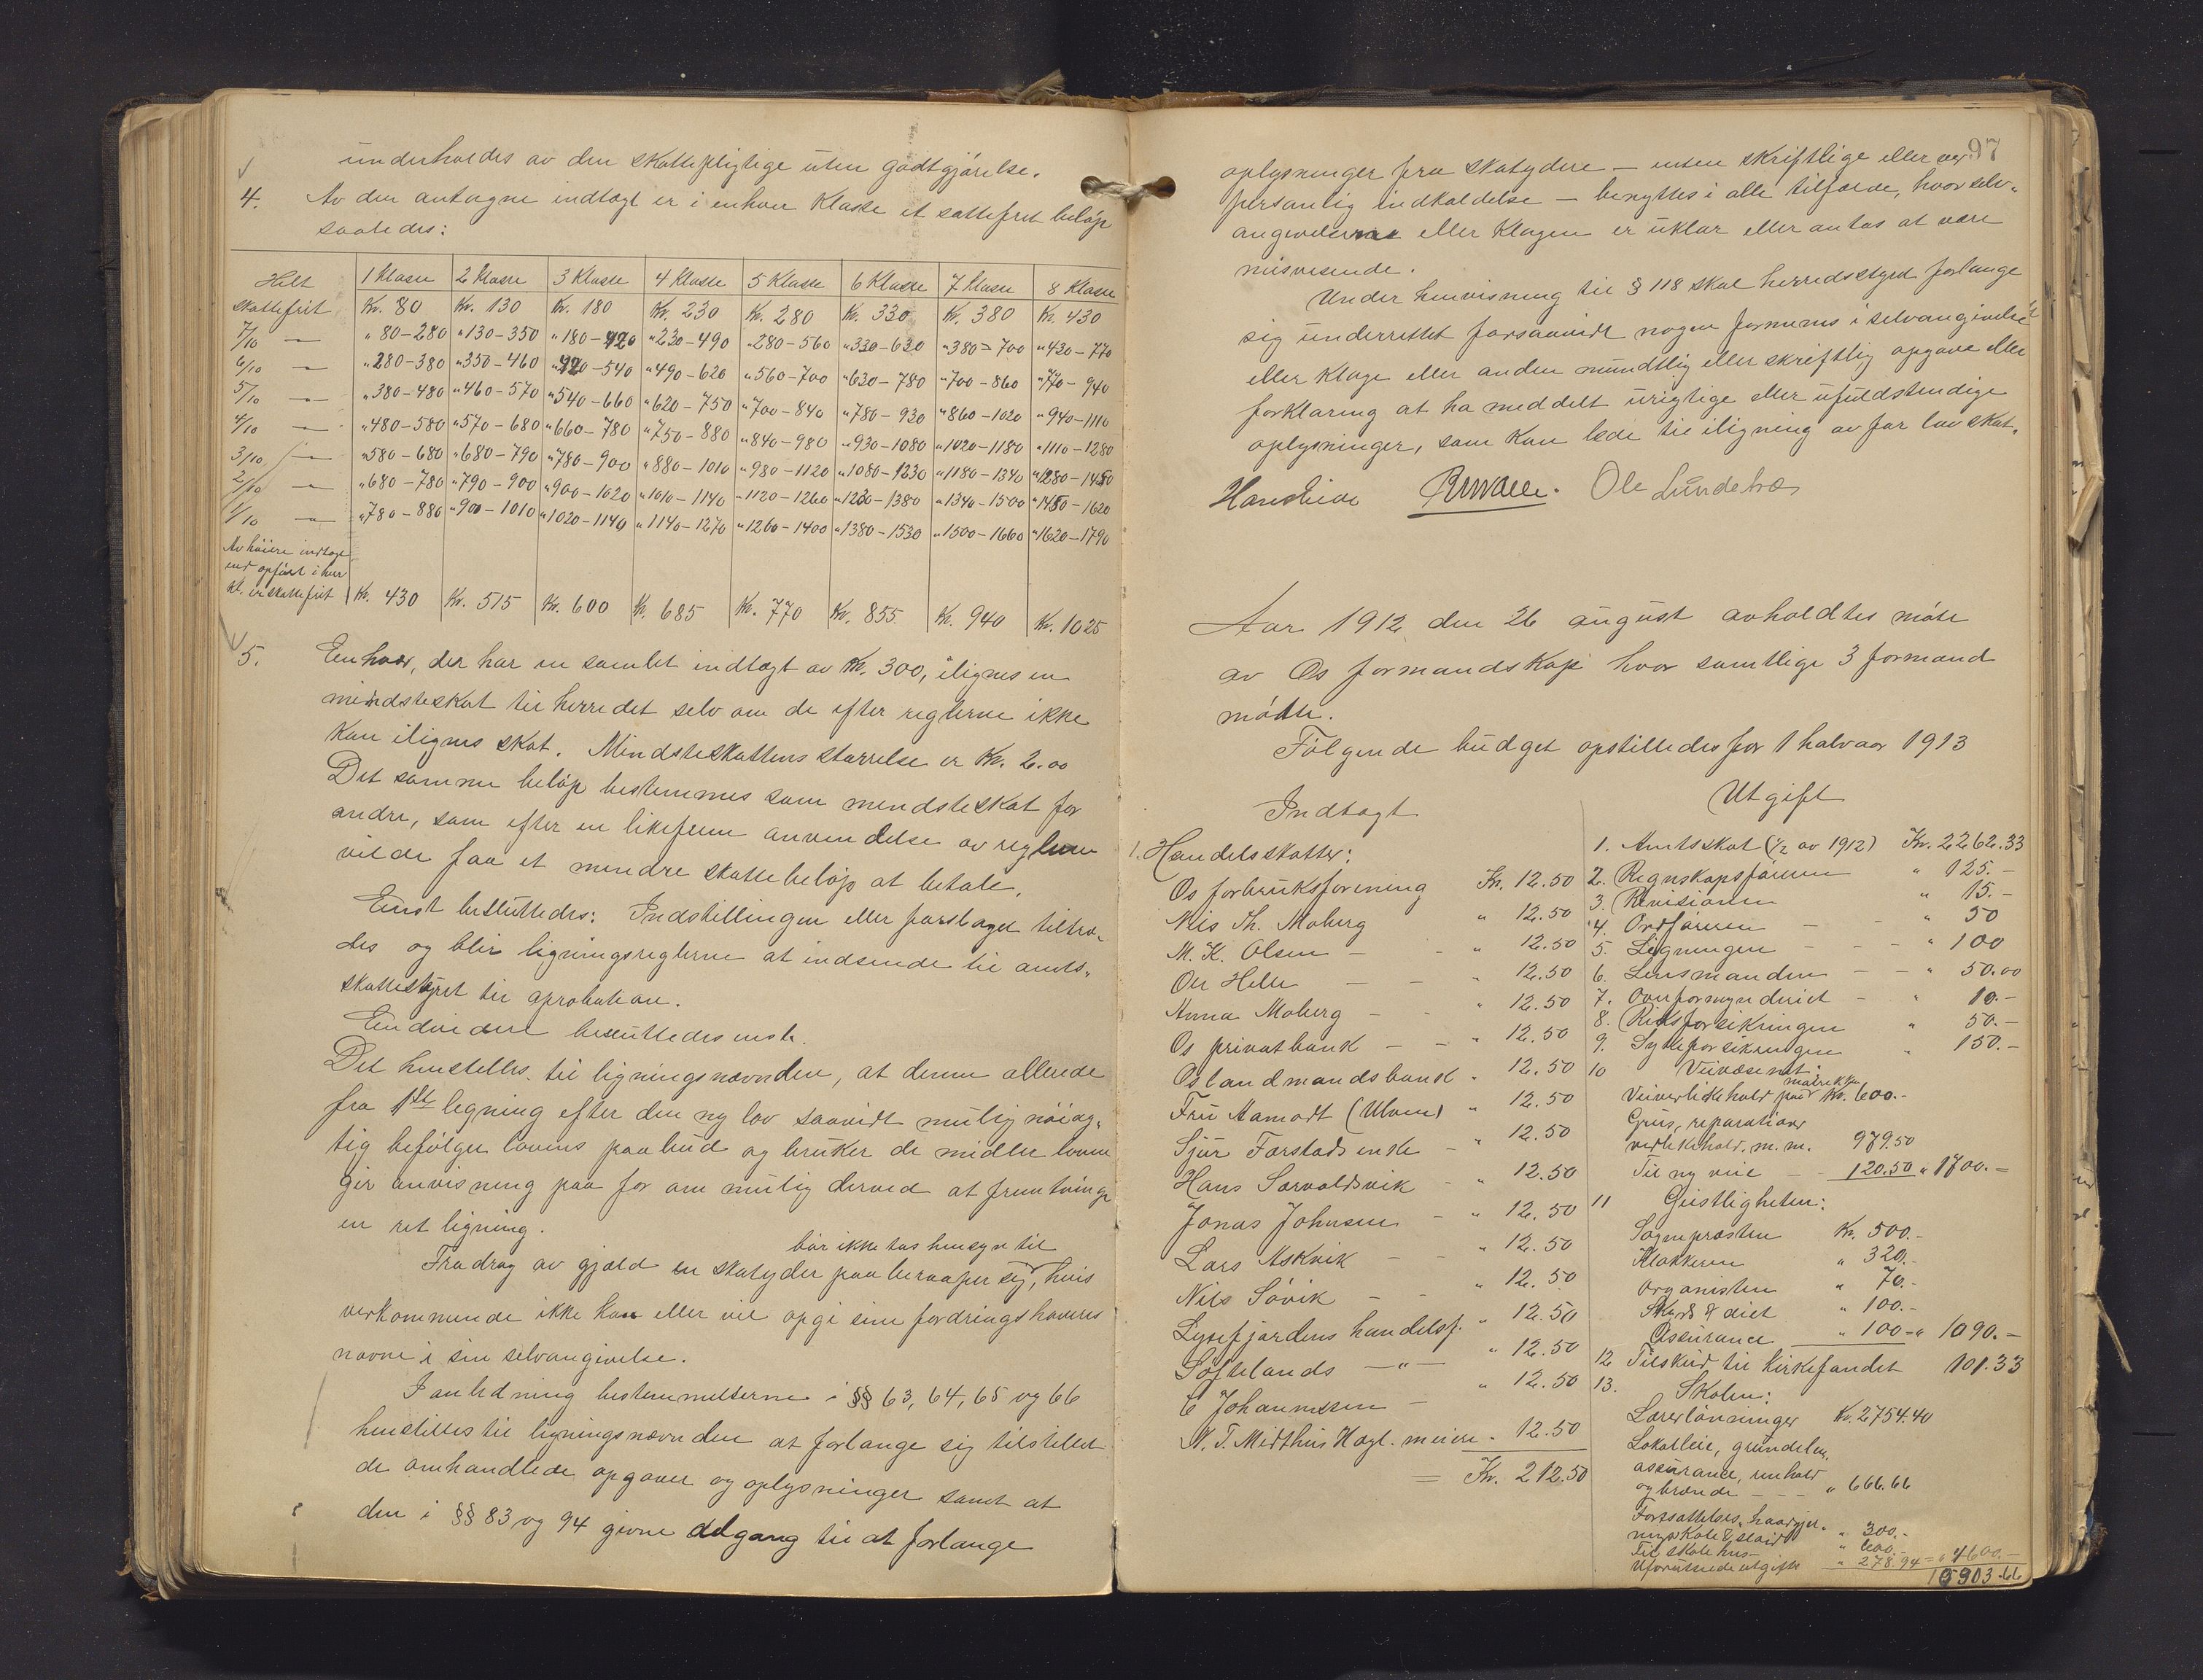 underholdes av den skattepligtige uten godtgjørelse.
4. Av den antagne indtægt er i enhver Klasse et skattefrit beløp
saaledes:
Helt 1 Klasse 2 Klasse 3 Klasse 4 Klasse 5 Klasse 6 Klasse 7 Klasse 8 Klasse
skattefrit Kr. 80 Kr. 130 Kr. 180 Kr. 230 Kr. 280 Kr. 330 Kr. 380 Kr. 430
7/10 — " 80-280 "130-350 "180-420 "230-490 "280-560 "330-630 "380-700 "430-770
6/10 — "280-380 "350-460 "420-540 "490-620 "560-700 "630-780 "700-860 "770-940
5/10 — "380-480 "460-570 "540-660 "620-750 "700-840 "780-930 "860-1020 "940-1110
4/10 — "480-580 "570-680 "660-780 "750-880 "840-980 "930-1080 "1020-1180 "1110-1280
3/10 — "580-680 "680-790 "780-900 "880-1010 "980-1120 "1080-1230 "1180-1340 "1280-1450
2/10 — "680-780 "790-900 "900-1020 "1010-1140 "1120-1260 "1230-1380 "1340-1500 "1450-1620
1/10 — "780-880 "900-1010 "1020-1140 "1140-1270 "1260-1400 "1380-1530 "1500-1660 "1620-1790
Av høiere indtægt
end opført i hver
kl. er skattefrit Kr. 430 Kr. 515 Kr. 600 Kr. 685 Kr. 770 Kr. 855 Kr. 940 Kr. 1025
5. Enhver, der har en samlet indtægt av Kr. 300, ilignes en
mindsteskat til herredet selv om de efter reglerne ikke
kan ilignes skat. Mindsteskattens størrelse er Kr. 2.00
Det samme beløp bestemmes som mindsteskat for
andre, som efter en likefrem anvendelse av reglerne
vilde faa et mindre skattebeløp at betale.
Enst besluttedes: Indstillingen eller forslaget tiltræ-
des og blir ligningsreglerne at indsende til amts-
skattestyret til aprobation.
Endvidere besluttedes enst.
Det henstilles til ligningsnævnden, at denne allerede
fra 1ste ligning efter den ny lov saavidt mulig nøiag-
tig befølger lovens paabud og bruker de midler loven
gir anvisning paa for om mulig derved at fremtvinge
en ret ligning.
bør ikke tas hensyn til
Fradrag av gjæld en skatyder paaberaaper sig, hvis
vedkommende ikke kan eller vil opgi sine fordringshaveres
navne i sin selvangivelse.
I anledning bestemmelserne i §§ 63, 64, 65 og 66
henstilles til ligningsnævnden at forlange sig tilstillet
de omhandlede opgaver og oplysninger samt at
den i §§ 83 og 94 givne adgang til at forlange
97
oplysninger fra skatydere — enten skriftlige eller ved
personlig indkaldelse — benyttes i alle tilfælde, hvor selv-
angivelserne eller Klagen er uklar eller antas at være
misvisende.
Under henvisning til § 118 skal herredsstyret forlange
sig underrettet forsaavidt nogen formenes i selvangivelse
eller Klage eller anden mundtlig eller skriftlig opgave eller
forklaring at ha meddelt urigtige eller ufuldstændige
oplysninger, som kan lede til iligning av for lav skat.
Ole Lundetræ
Aar 1912 den 26 august avholdtes møte
av Os formandskap hvor samtlige 3 formænd
møtte.
Følgende budget opstilledes for 1 halvaar 1913
Indtægt
1. Handelsskatter:
Os forbruksforening Kr. 12.50
Nils Th. Moberg " 12.50
M. K. Olsen — " 12.50
Ole Helle — " 12.50
Anna Moberg — " 12.50
Os privatbank — " 12.50
Os landmandsbank " 12.50
Fru Aamodt (Ulven) " 12.50
Sjur Forstads enke " 12.50
Hans Sørvoldsvik " 12.50
Jonas Johnsen — " 12.50
Lars Askvik — " 12.50
Nils Søvik — " 12.50
Lysefjordens handelsf. " 12.50
Søftelands —"— " 12.50
E Johannessen — " 12.50
N. T. Midthus Hagl. meieri " 12.50
= Kr. 212.50
Utgift
1. Amtsskat (1/2 av 1912) Kr. 2262.33
2. Regnskapsføreren " 125.—
3. Revisionen " 15.—
4. Ordføreren — " 50
5. Ligningen — " 100
6. Lensmanden — " 50.00
7. Overformynderiet — " 10.—
8. Riksforsikringen " 50.—
9. Sykeforsikringen " 150.—
10 Veivæsenet:
Veivedlikehold paa matrikken Kr. 600.—
Grus, reparationer
vedlikehold. m.m. 979.50
Til ny veie — 120.50 " 1700.—
11 Geistligheten:
Sogneprästen Kr. 500.—
Klokkeren " 320.—
Organisten " 70.—
Skyds & diet " 100.—
Assurance " 100 = " 1090.—
12 Tilskud til Kirkefondet 101.33
13. Skolen:
Lærerlønninger Kr. 2754.40
Lokalleie, grundeleie,
assurance, renhold
og brænde — " 666.66
Fortsættelses, haandgjer-
ningsskole & sløid " 300.—
Til skolehus " 600.—
Uforutseede utgifter " 278.94 = " 4600.—
10303.66